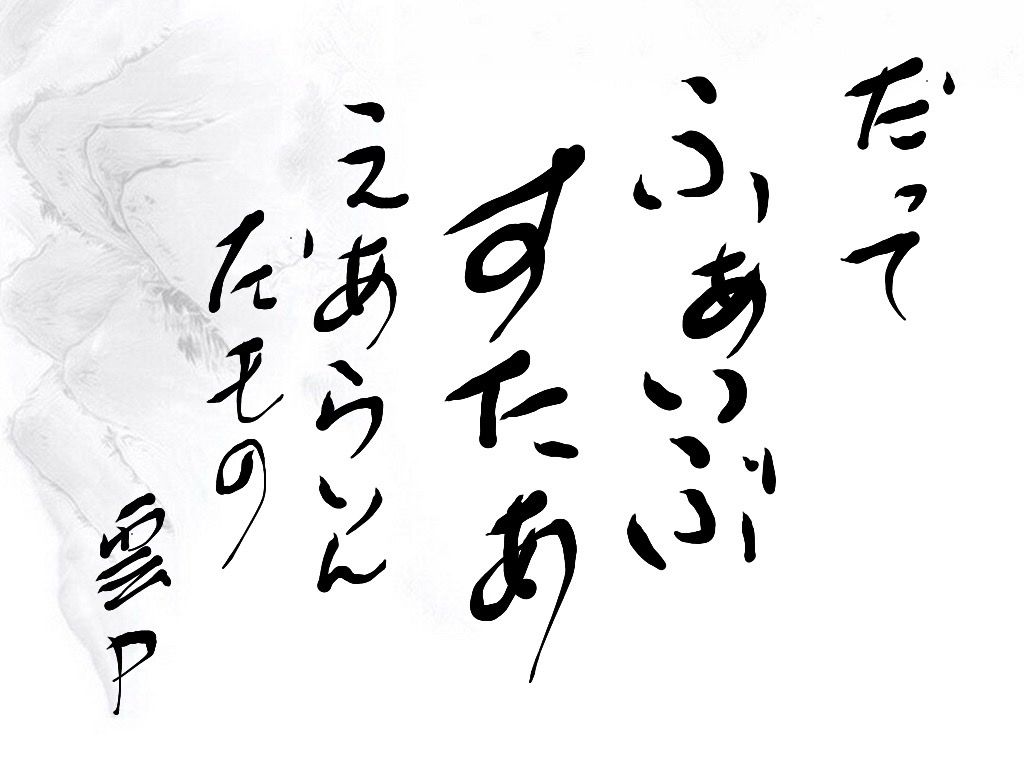 だって
ふぁいぶ
すたあ
えあらいん
だもの
雲P